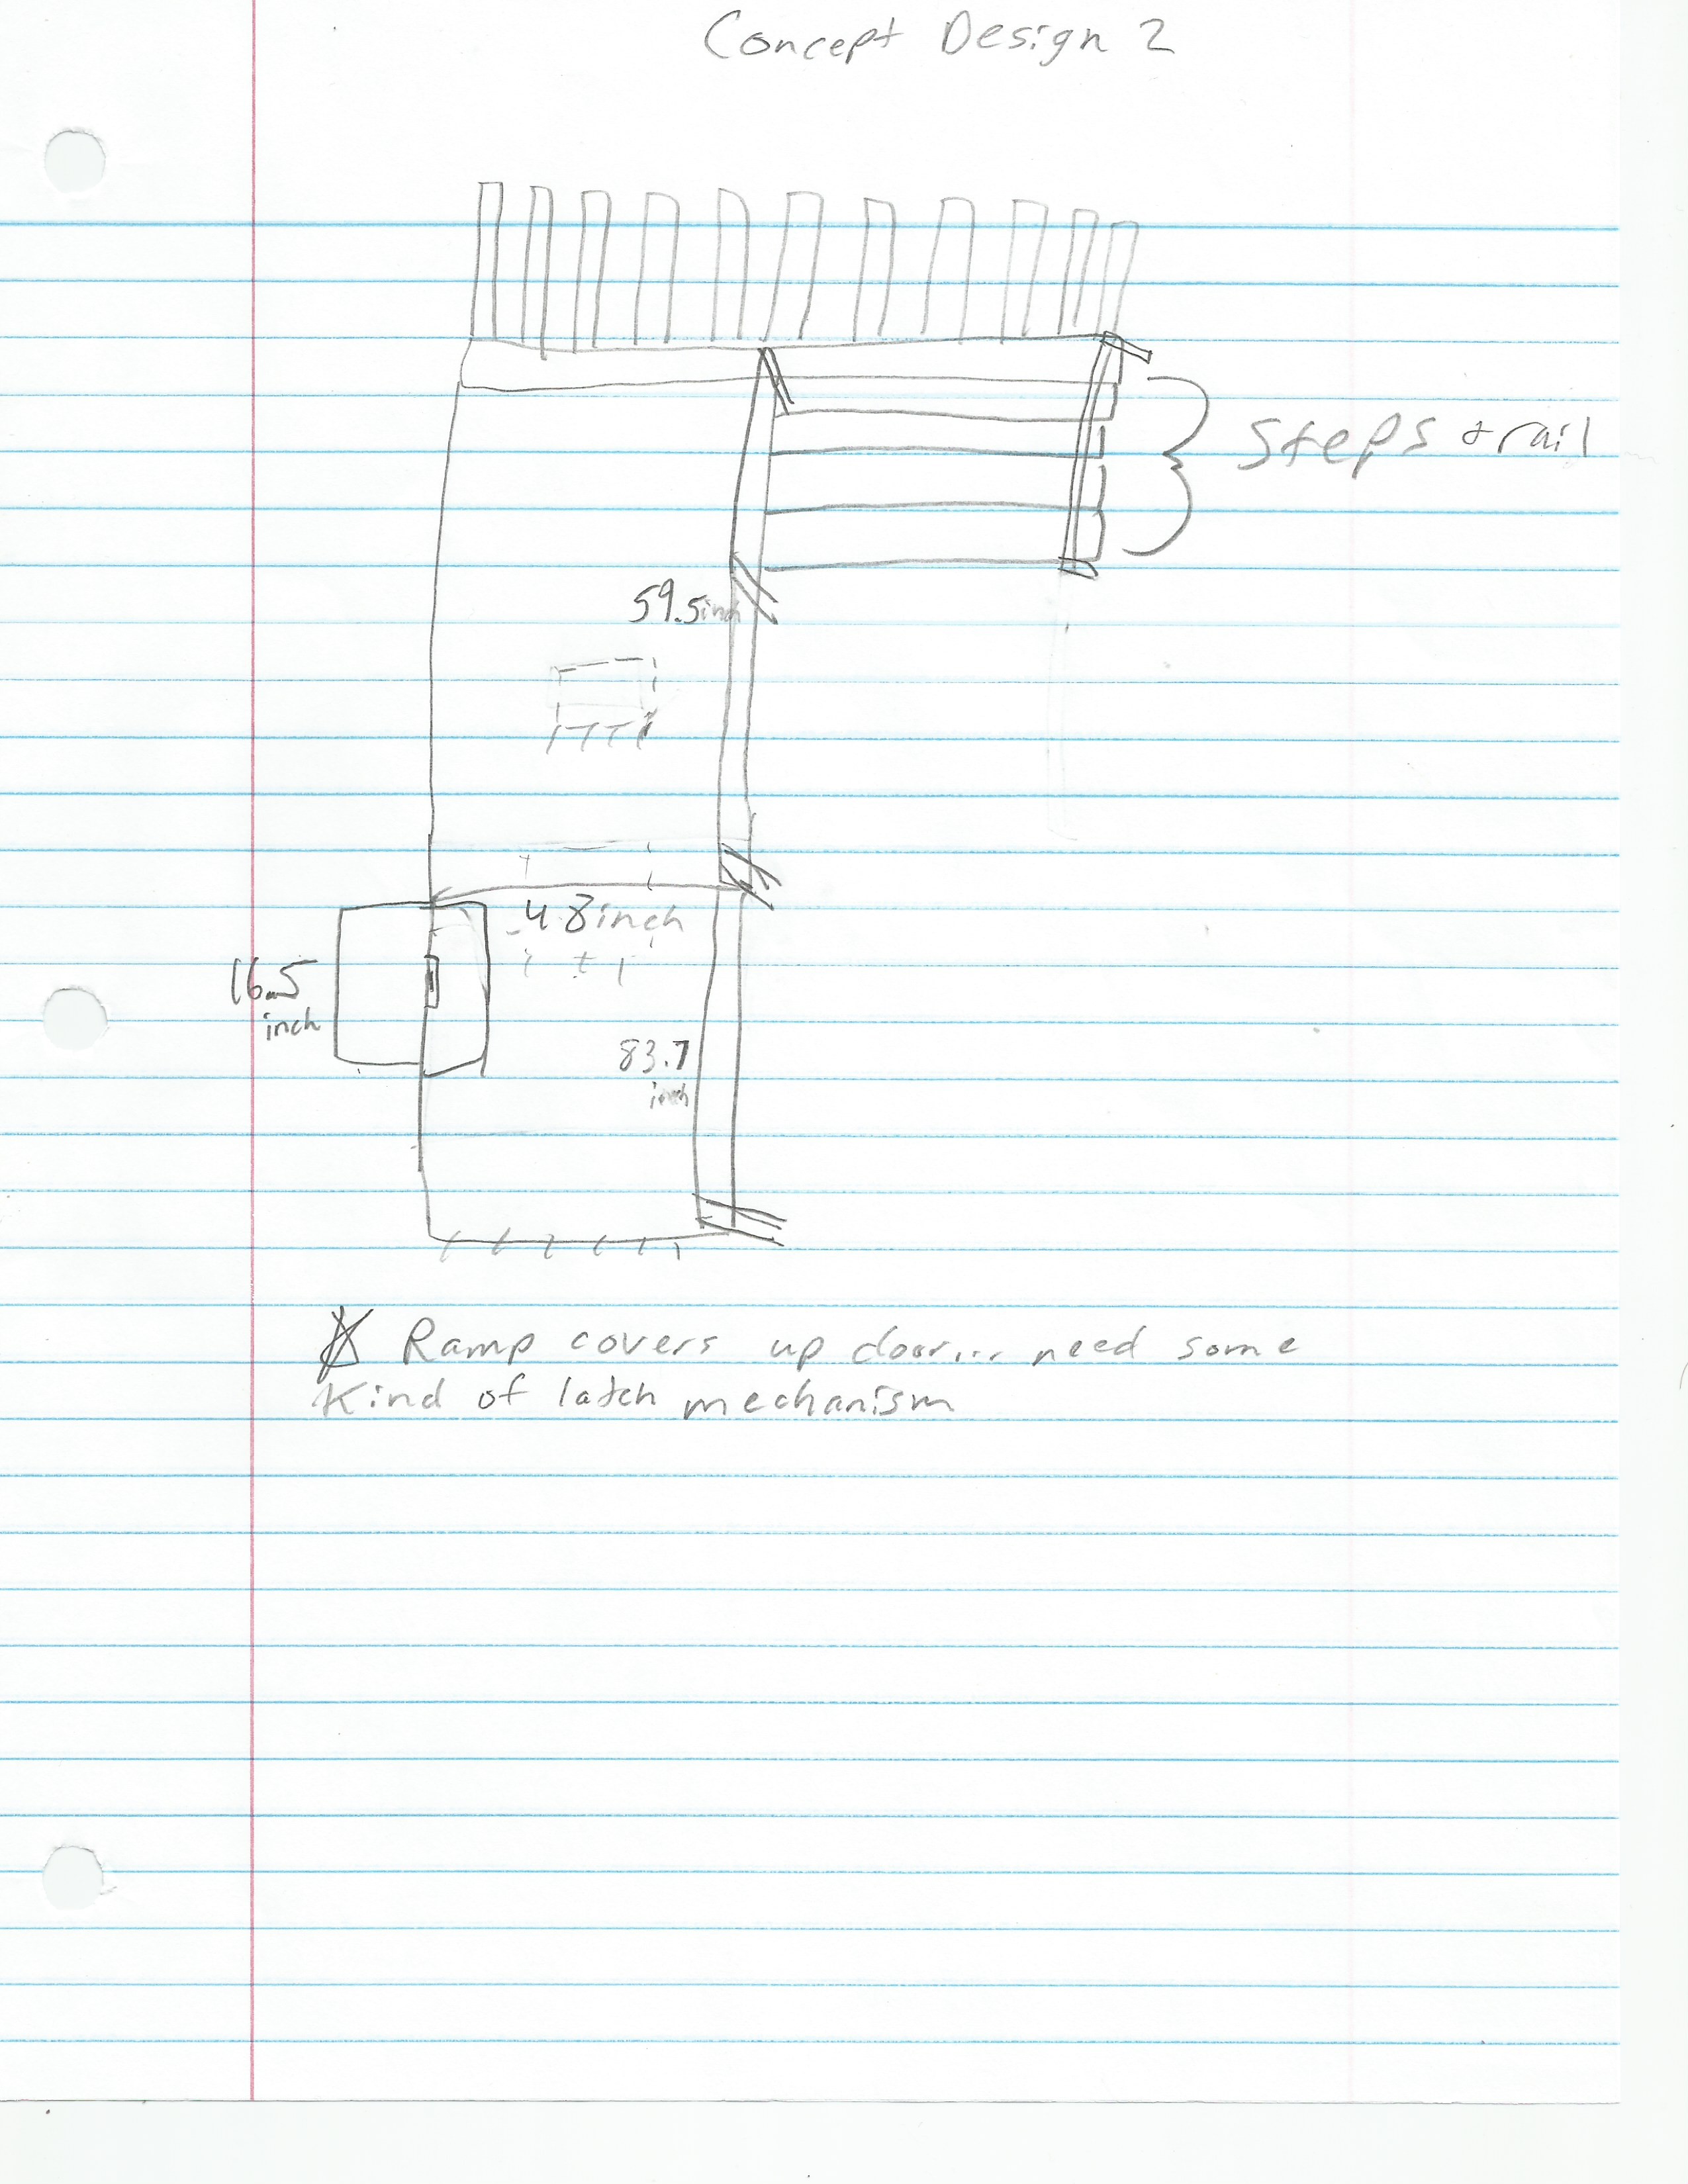 Concept Design 2
Steps + rail
59.5inch
48inch
16.5
inch
83.7
inch
Ramp covers up door... need some
Kind of latch mechanism